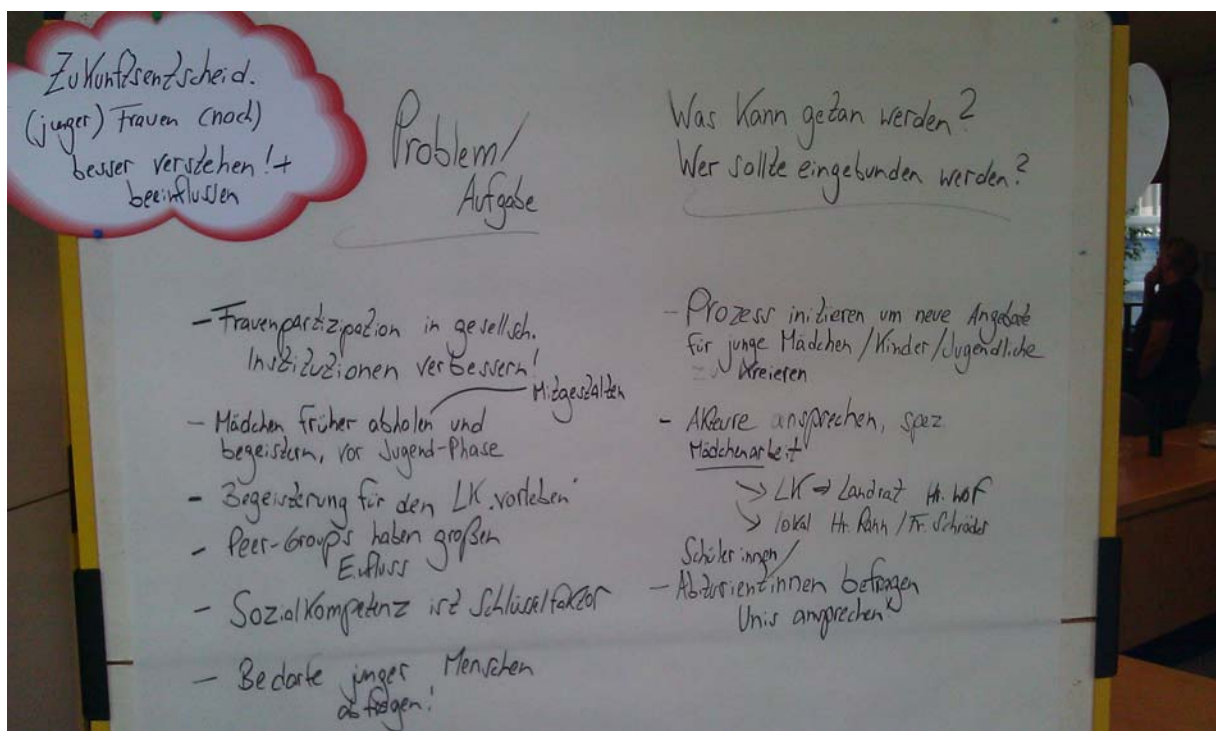 Zukunftsentscheid.
(junger) Frauen (noch)
besser verstehen! +
beeinflussen
Problem/
Aufgabe
- Frauenpartizipation in gesellsch.
Institutionen verbessern!
Mitgestalten
- Mädchen früher abholen und
begeistern, vor Jugend-Phase
- Begeisterung für den LK "vorleben"
- Peer-Group's haben großen
Einfluss
- Sozialkompetenz ist Schlüsselfaktor
- Bedarfe junger Menschen
abfragen!
Was kann getan werden?
Wer sollte eingebunden werden?
- Prozess initiieren um neue Angebote
für junge Mädchen/Kinder/Jugendliche
zu kreieren
- Akteure ansprechen, spez.
Mädchenarbeit
> LK → Landrat Hr.
> lokal Hr. / Fr. Schröder
Schülerinnen/
- Abiturientinnen befragen
Unis ansprechen